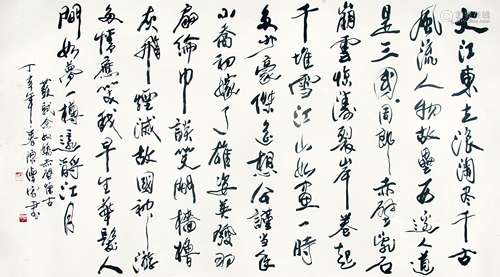 大江東去浪淘尽千古
風流人物故壘西邊人道
是三國周郎赤壁亂石
崩雲惊濤裂岸卷起
千堆雪江山如画一時
多少豪傑遥想公瑾當年
小喬初嫁了雄姿英發羽
扇綸巾談笑間檣櫓
灰飛煙滅故國神游
多情應笑我早生華髮人
間如夢一樽還酹江月
蘇軾念奴嬌赤壁懷古
丁亥年春陳